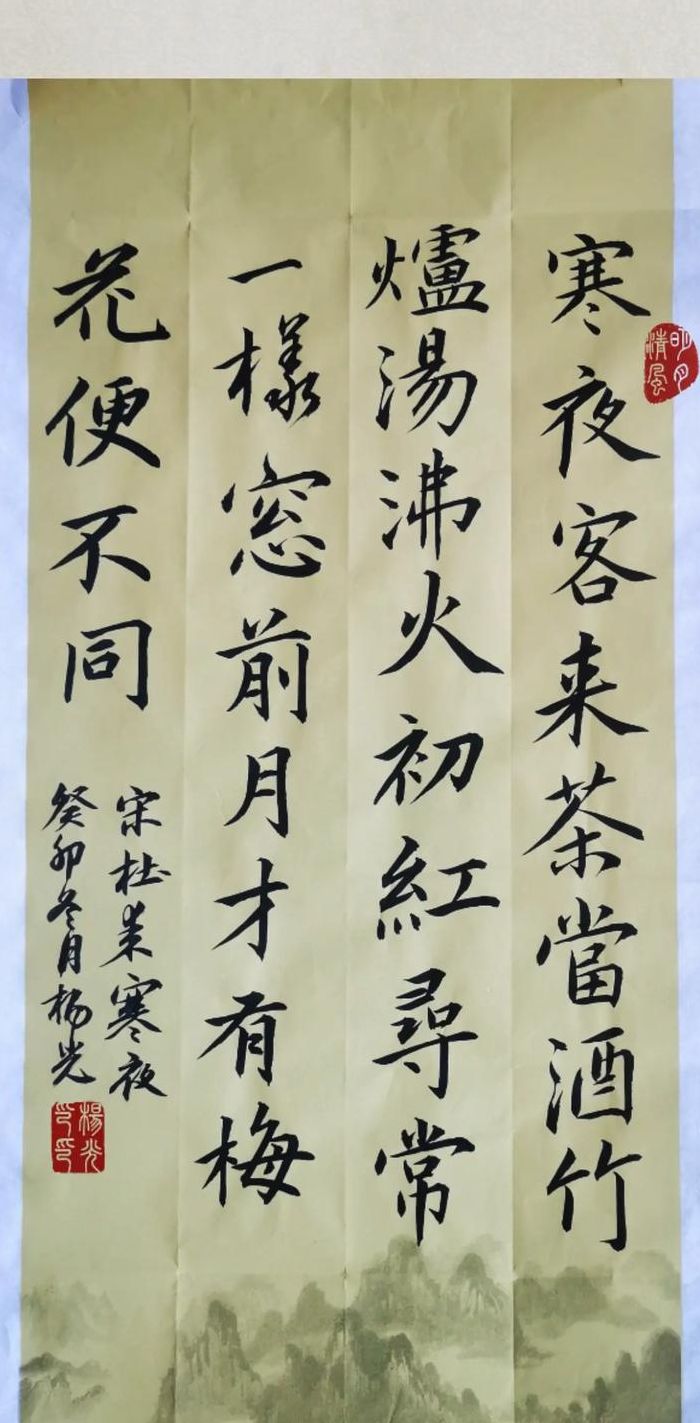 寒夜客来茶當酒竹
爐湯沸火初紅尋常
一樣窓前月才有梅
花便不同
宋杜耒寒夜
癸卯冬月杨光
明月清風
楊光之印